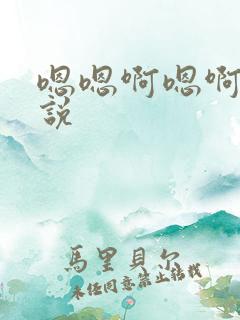 嗯嗯啊嗯啊
説
馬里貝尔
未经同意禁止转载